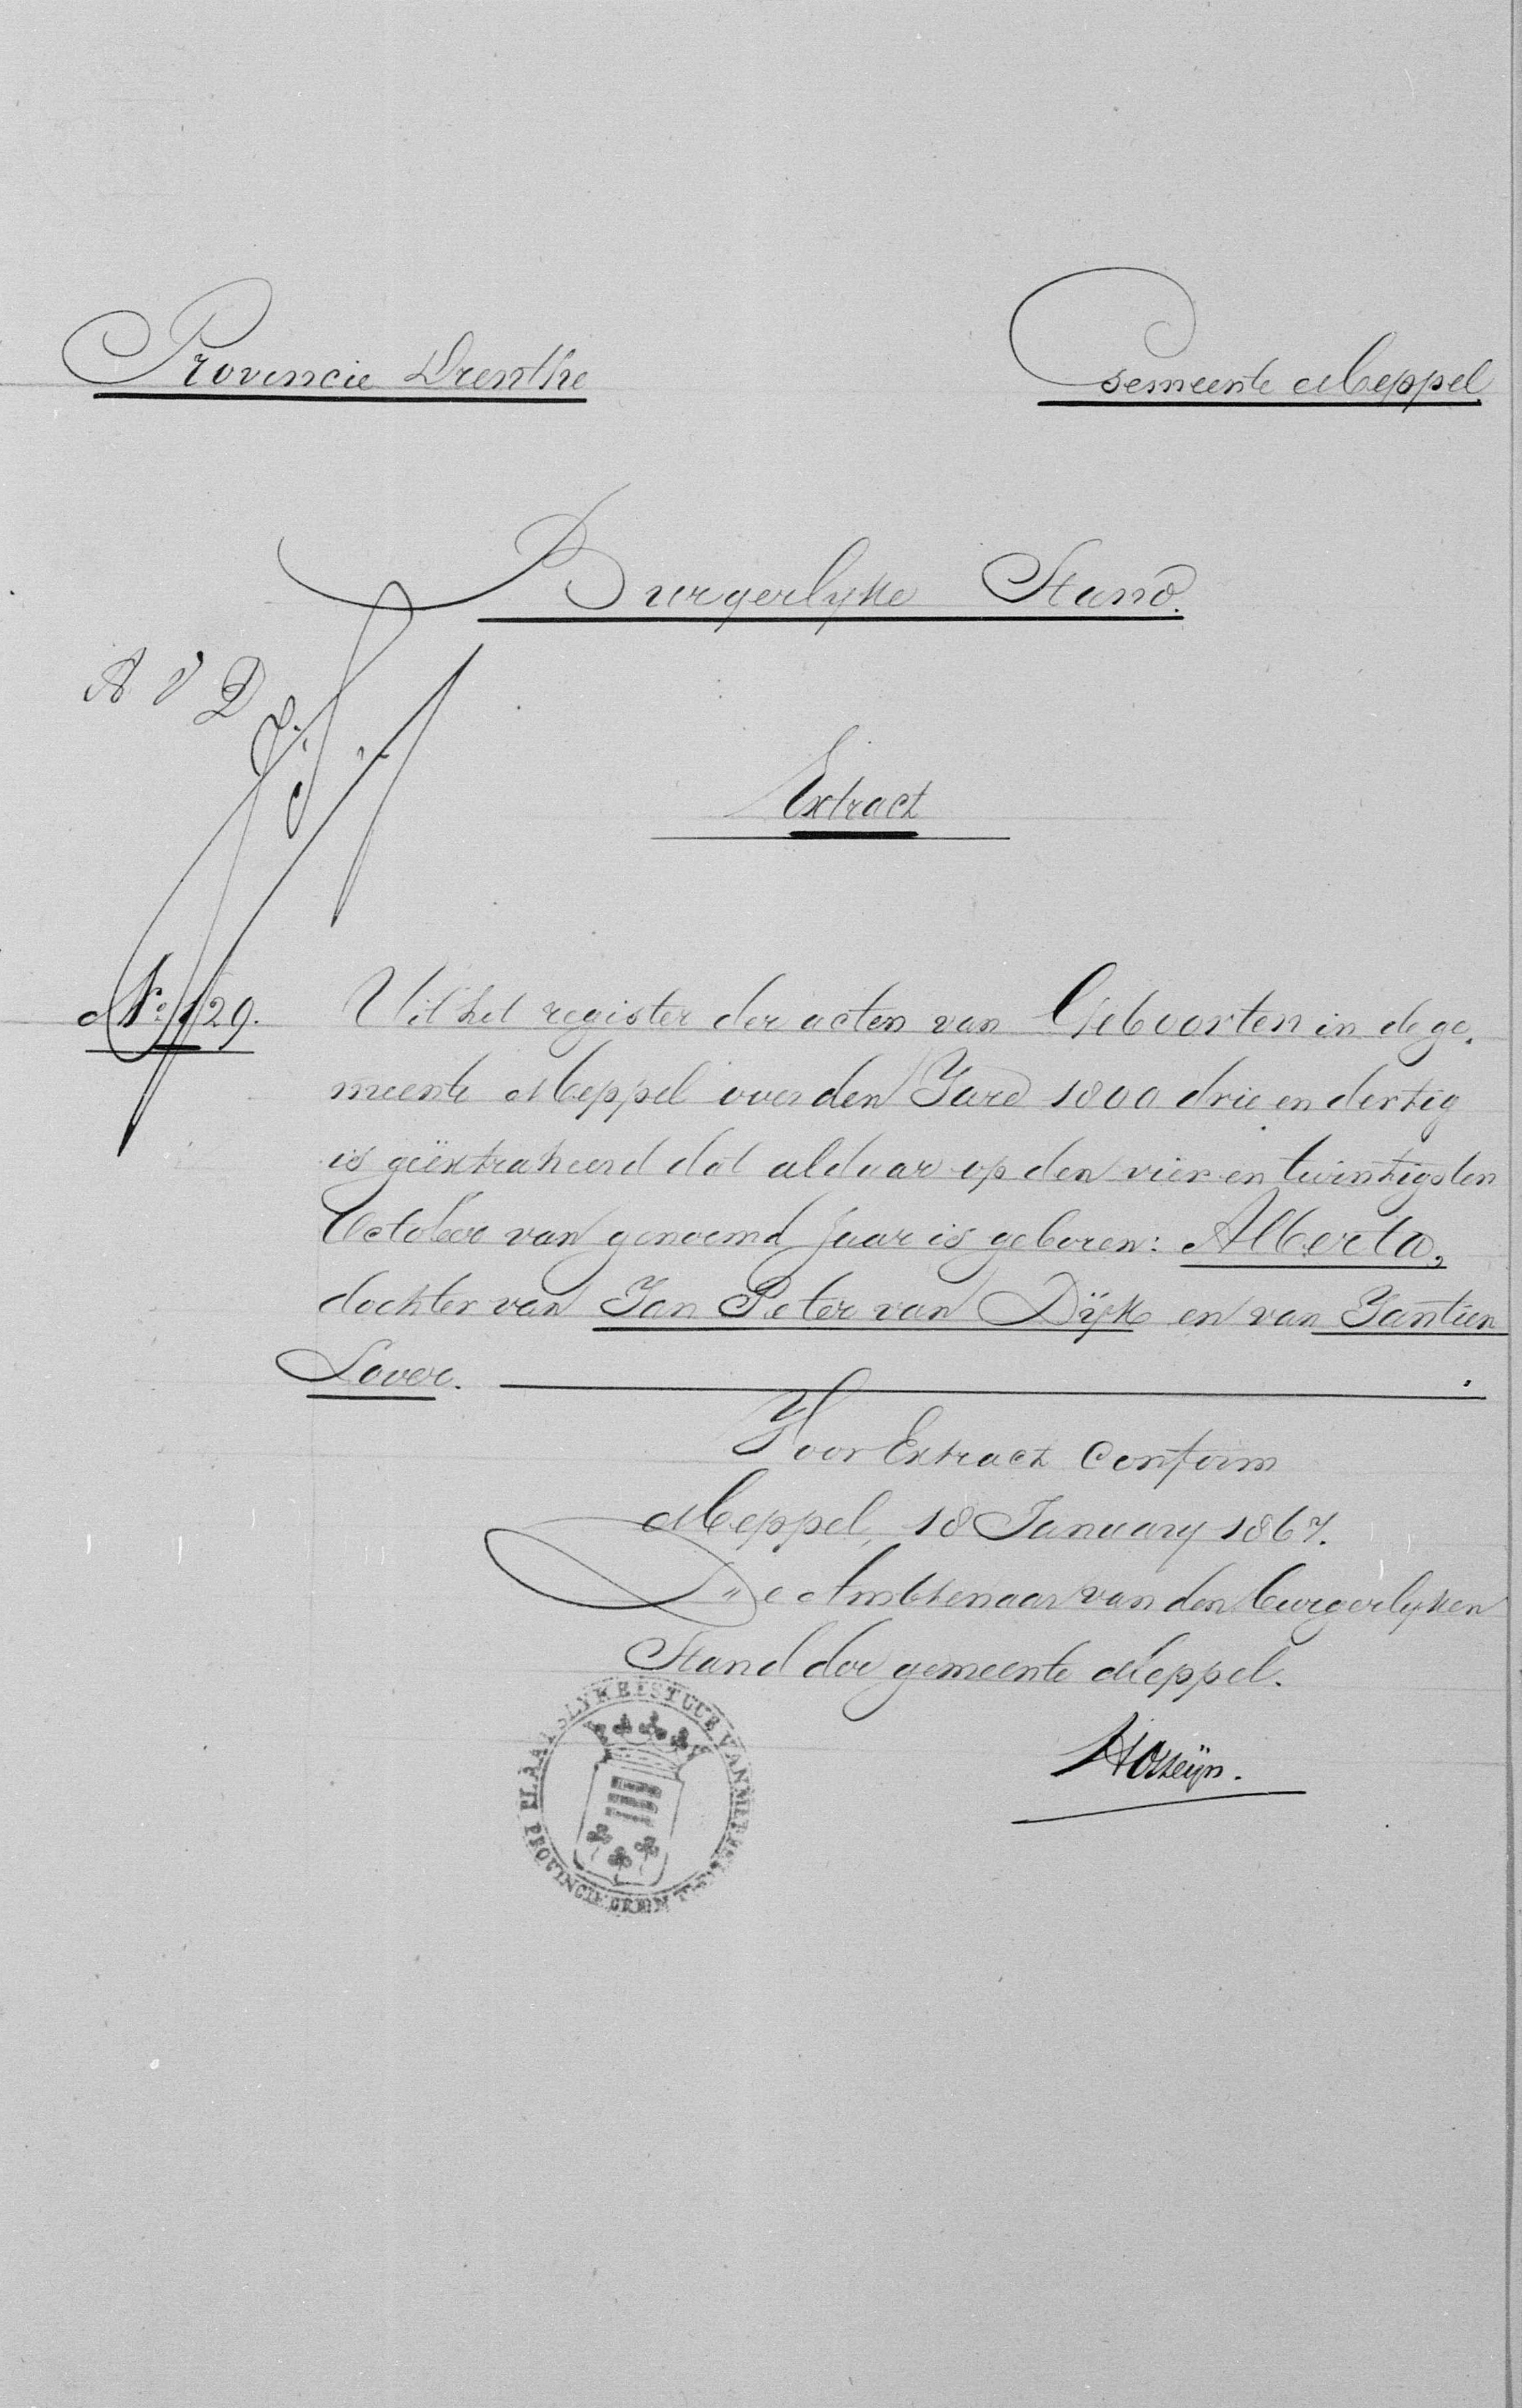 Provincie Drenthe
Gemeente Meppel
Burgerlyke Stand.
A V D
Extract
No. 129.
Uit het register der acten van Geboorten in de ge.
meente Meppel over den Jare 1800 drie en dertig
is geëxtraheerd dat aldaar op den vier en twintigsten
October van genoemd jaar is geboren: Alberta,
dochter van Jan Peter van Dÿk en van Jantien
Lover.
Voor Extract Conform
Meppel, 18 January 1867.
De Ambtenaar van den burgerlyken
Stand der gemeente Meppel.
PLAATSLYKE BESTUUR VAN MEPPEL
PROVINCIE